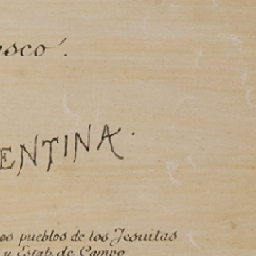 esco.
ENTINA.
os pueblos de los Jesuitas
y Estab. de Campo